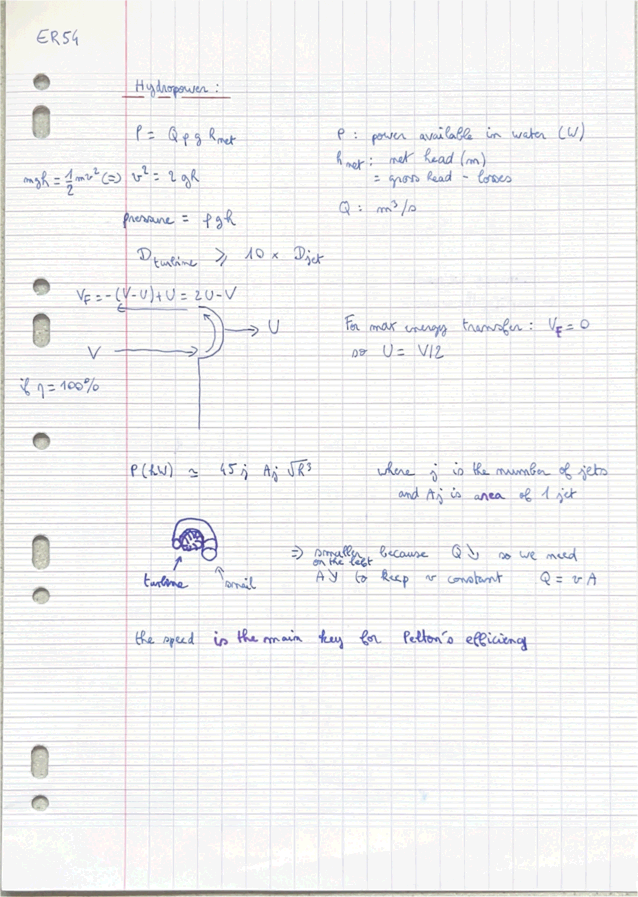 ER54
Hydropower :
P = Qρg h_net
P : power available in water (W)
h_net : net head (m)
= gross head - losses
mgh = 1/2 mv² (=) v² = 2gh
Q : m³/s
pressure = ρgh
D_turbine ≥ 10 × D_jet
V_F = -(V-U)+U = 2U-V
U
For max energy transfer : V_F = 0
so U = V/2
V
if η = 100%
P(kW) ≃ 45 j Aj √h³
where j is the number of jets
and Aj is area of 1 jet
=) smaller because Q↘ so we need
on the last
A↘ to keep v constant Q = v A
turbine
snail
the speed is the main key for Pelton's efficiency